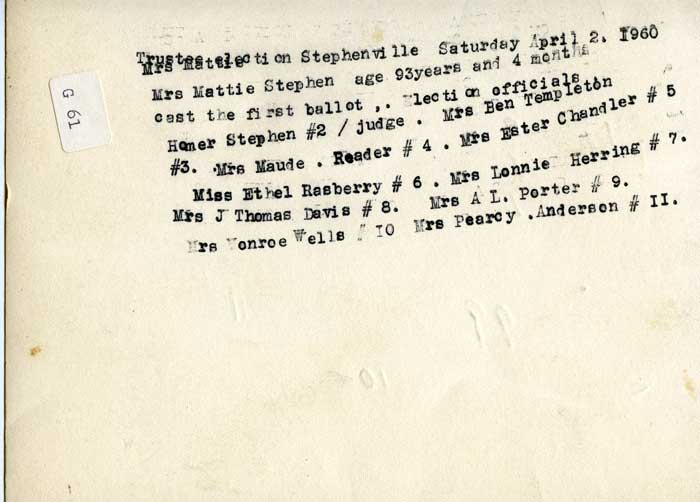 Trustee election Stephenville Saturday April 2. 1960
Mrs Mattie
Mrs Mattie Stephen age 93years and 4 months
cast the first ballot ,. Election officials
Homer Stephen #2 / judge . Mrs Ben Templeton
#3. .Mrs Maude . Reader # 4 . Mrs Ester Chandler # 5
Miss Ethel Rasberry # 6 . Mrs Lonnie Herring # 7.
Mrs J Thomas Davis # 8. Mrs A L. Porter # 9.
Mrs Monroe Wells # 10 Mrs Pearcy .Anderson # 11.
G 61